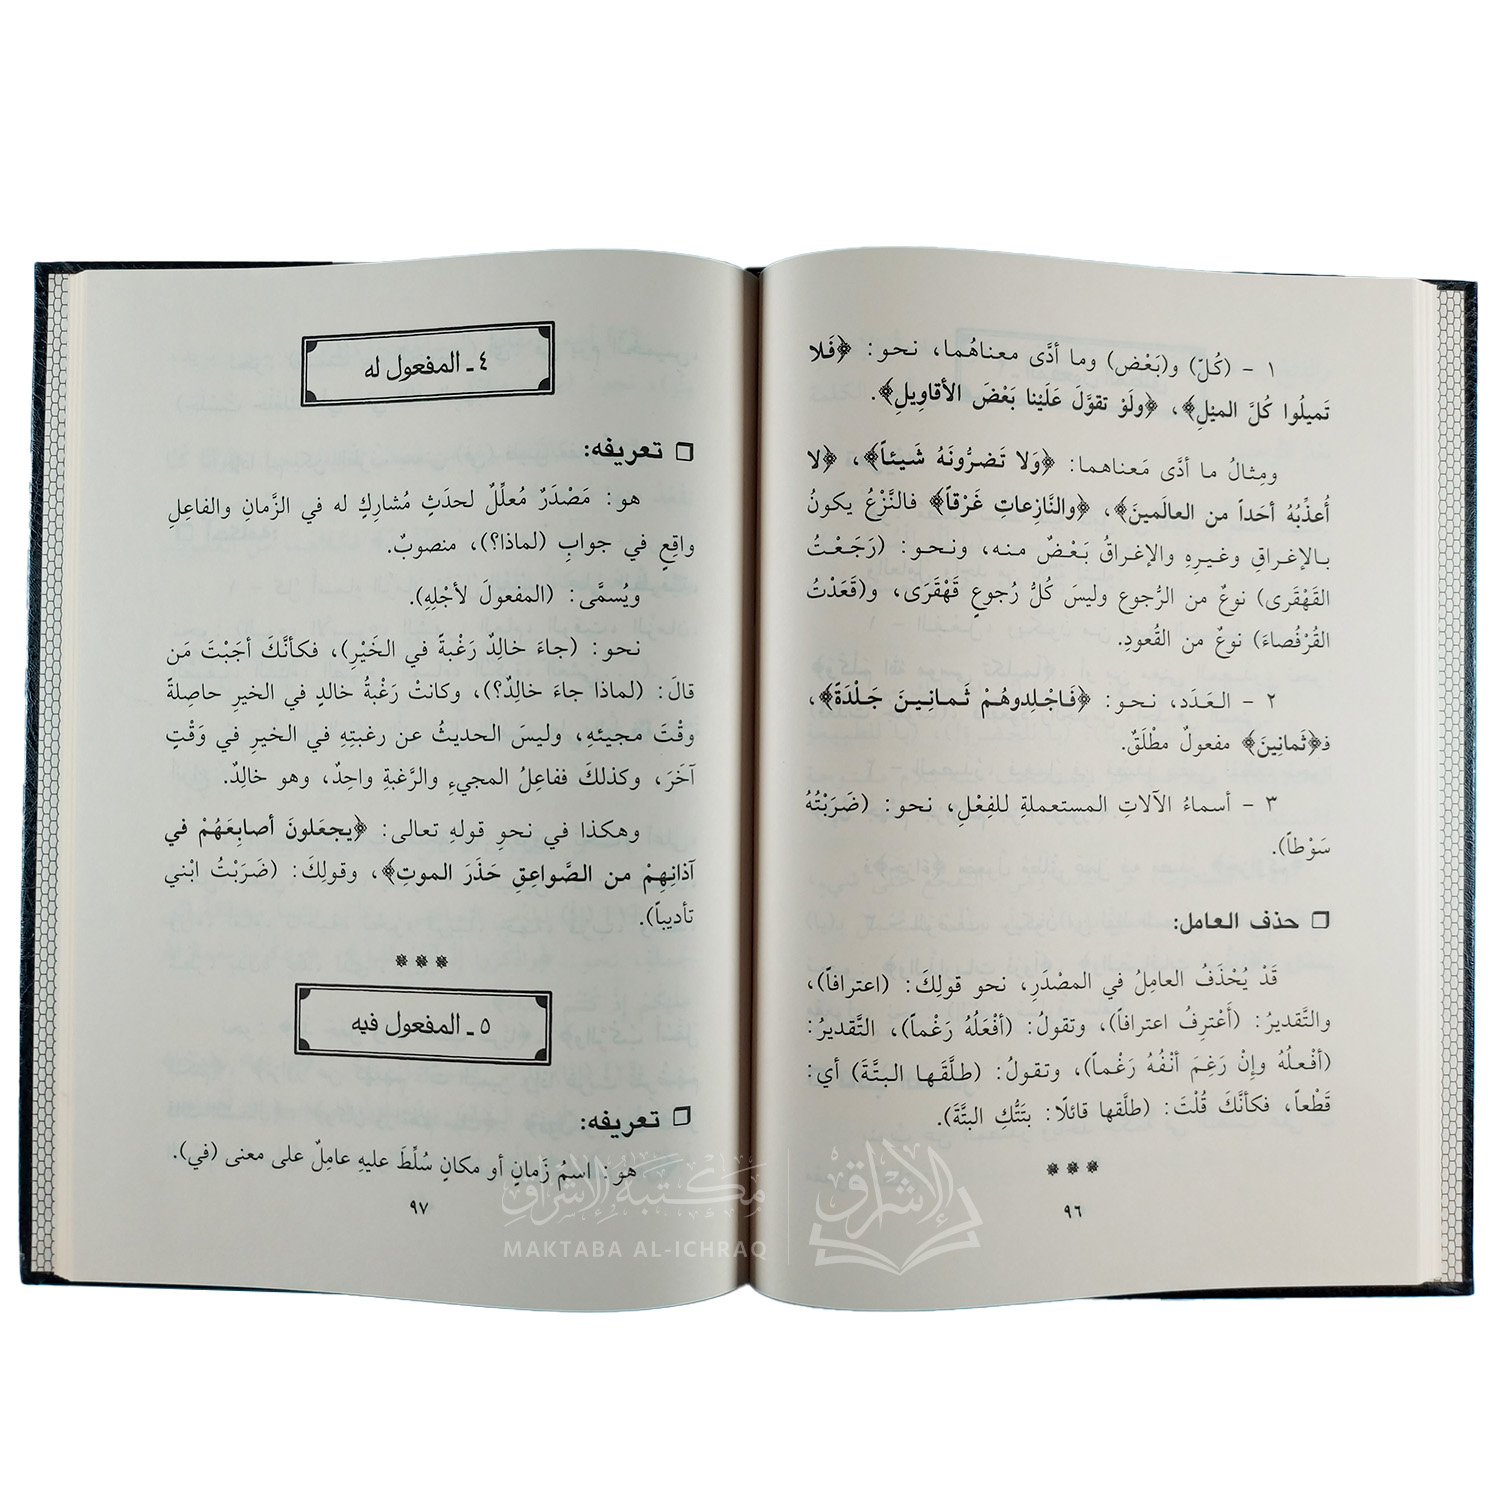 ١ - (كُلّ) و(بَعْض) وما أدَّى معناهُما، نحو: ﴿فَلا
تَميلُوا كُلَّ الميْلِ﴾، ﴿ولَوْ تقوَّلَ عَلَيْنا بَعْضَ الأقاويلِ﴾.
ومِثالُ ما أدَّى مَعناهما: ﴿وَلا تَضرُّونَهُ شَيئاً﴾، ﴿لا
أُعذِّبُهُ أحَداً من العالَمينَ﴾، ﴿والنَّازِعاتِ غَرْقاً﴾ فالنَّزْعُ يكونُ
بالإغراقِ وغيرِهِ والإغراقُ بَعْضٌ منه، ونحو: (رَجَعْتُ
القَهْقَرى) نوعٌ من الرُّجوع وليسَ كُلُّ رُجوعٍ قَهْقَرى، و(قَعَدْتُ
القُرْفُصاءَ) نوعٌ من القُعودِ.
٢ - العَدَد، نحو: ﴿فَاجْلِدوهُمْ ثَمانِينَ جَلْدَةً﴾،
فـ﴿ثَمانِينَ﴾ مفعولٌ مطْلَقٌ.
٣ - أسماءُ الآلاتِ المستعملةِ للفِعْلِ، نحو: (ضَرَبْتُهُ
سَوْطاً).
❒ حذف العامل:
قَدْ يُحْذَفُ العامِلُ في المصْدَرِ، نحو قولِكَ: (اعترافاً)،
والتَّقديرُ: (أَعْترِفُ اعترافاً)، وتقولُ: (أفْعَلُهُ رَغْماً)، التَّقديرُ:
(أفْعلُهُ وإنْ رَغِمَ أنْفُهُ رَغْماً)، وتقولُ: (طلَّقَها البتَّةَ) أي:
قَطْعاً، فكأنَّكَ قُلْتَ: (طلَّقها قائلًا: بتَتُّكِ البتَّةَ).
***
٩٦
٤ ـ المفعول له
❒ تعريفه:
هو: مَصْدَرٌ مُعلِّلٌ لحدَثٍ مُشارِكٍ له في الزَّمانِ والفاعِلِ
واقِعٍ في جوابِ (لماذا؟)، منصوبٌ.
ويُسمَّى: (المفعولَ لأجْلِهِ).
نحو: (جاءَ خالِدٌ رَغْبةً في الخَيْرِ)، فكأنَّكَ أجَبْتَ مَن
قالَ: (لماذا جاءَ خالِدٌ؟)، وكانتْ رَغْبةُ خالدٍ في الخيرِ حاصِلةً
وقْتَ مجيئهِ، وليسَ الحديثُ عن رغبتِهِ في الخيرِ في وَقْتٍ
آخَرَ، وكذلكَ ففاعِلُ المجيءِ والرَّغبةِ واحِدٌ، وهو خالِدٌ.
وهكذا في نحوِ قولهِ تعالى: ﴿يجعَلونَ أصابِعَهُمْ في
آذانِهِمْ من الصَّواعِقِ حَذَرَ الموتِ﴾، وقولِكَ: (ضَرَبْتُ ابْني
تأديباً).
***
٥ ـ المفعول فيه
❒ تعريفه:
هو: اسمُ زَمانٍ أو مكانٍ سُلِّطَ عليهِ عامِلٌ على معنى (في).
٩٧
مكتبة الإشراق
الإشراق
MAKTABA AL-ICHRAQ